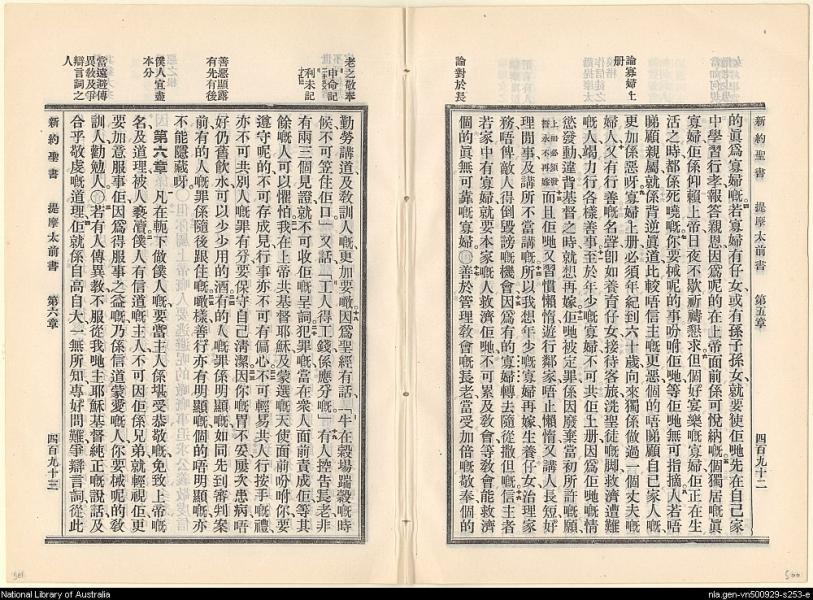 論寡婦上
册
論對於長
新約聖書 提摩太前書 第五章 四百九十二
的眞爲寡婦嘅若寡婦有仔女或有孫子孫女就要使佢哋先在自己家
中學習行孝報答親恩因爲呢的在上帝面前係可悅納嘅個獨居嘅眞
寡婦佢係仰賴上帝日夜不歇祈禱懇求但個好宴樂嘅寡婦佢正在生
活之時都係死曉嘅你要械呢的事吩咐佢哋等佢哋無可指摘人若唔
睇顧親屬就係背逆眞道比較唔信主嘅更惡個的唔睇顧自己家人嘅
更加係惡呀寡婦上册必須年紀到六十歲向來獨係做過一個丈夫嘅
婦人又有行善嘅名聲卽如養育仔女接待客旅洗聖徒嘅脚救濟遭難
嘅人竭力行各樣善事至於年少嘅寡婦不可共佢上册因爲佢哋嘅情
慾發動違背基督之時就想再嫁佢哋被定罪係因廢棄當初所許嘅願
上册必須發誓永不再嫁而且佢哋又習慣懶惰遊行鄰家唔止懶惰又講人長短好
理閒事及講所不當講嘅所以我想年少嘅寡婦再嫁生養仔女治理家
務唔俾敵人得倒毀謗嘅機會因爲有的寡婦轉去隨從撒但嘅信主者
若家中有寡婦就要本家嘅人救濟佢哋不可累及敎會等敎會能救濟
個的眞無可靠嘅寡婦〇善於管理敎會嘅長老當受加倍嘅敬奉個的
老之敬奉
申命記
利未記
善惡顯露
有先有後
僕人宜盡
本分
當遠避傳
異敎及爭
辯言詞之
人
勤勞講道及敎訓人嘅更加要噉因爲聖經有話「牛在穀場踹穀嘅時
候不可笠住佢口」又話「工人得工錢係應分嘅」有人控告長老非
有兩三個見證就不可收佢嘅呈詞犯罪嘅當在衆人面前責成佢等其
餘嘅人可以懼怕我在上帝共基督耶穌及蒙選嘅天使面前吩咐你要
遵守呢的不可存成見行事亦不可有偏心不可輕易共人行按手嘅禮
亦不可共別人嘅罪有分要保守自己清潔因你嘅胃不妥屢次患病唔
好仍舊飲水可以少少用的酒有的人嘅罪係明顯嘅如同先到審判案
前有的人嘅罪係隨後跟住嘅噉樣善行亦有明顯嘅個的唔明顯嘅亦
不能隱藏呀
第六章 凡在軛下做僕人嘅要當主人係堪受恭敬嘅免致上帝嘅
名及道理被人褻瀆僕人有信道嘅主人不可因佢係兄弟就輕視佢更
要加意服事佢因爲得服事之益嘅乃係信道蒙愛嘅人你要械呢的敎
訓人勸勉人〇若有人傳異敎不服從我哋主耶穌基督純正嘅說話及
合乎敬虔嘅道理佢就係自高自大一無所知專好問難爭辯言詞從此
新約聖書 提摩太前書 第六章 四百九十三
National Library of Australia
nla.gen-vn500929-s253-e